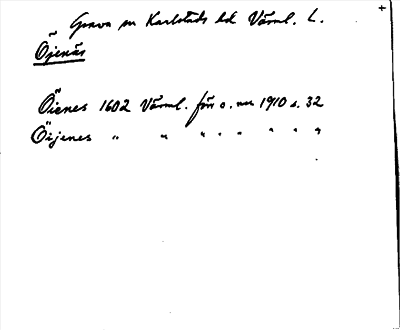 Grava sn Karlstads hd Värml. L.
Öjenäs
Öienes 1602 Värml. förr o. nu 1910 s. 32
Öijenes " " " " " " " "